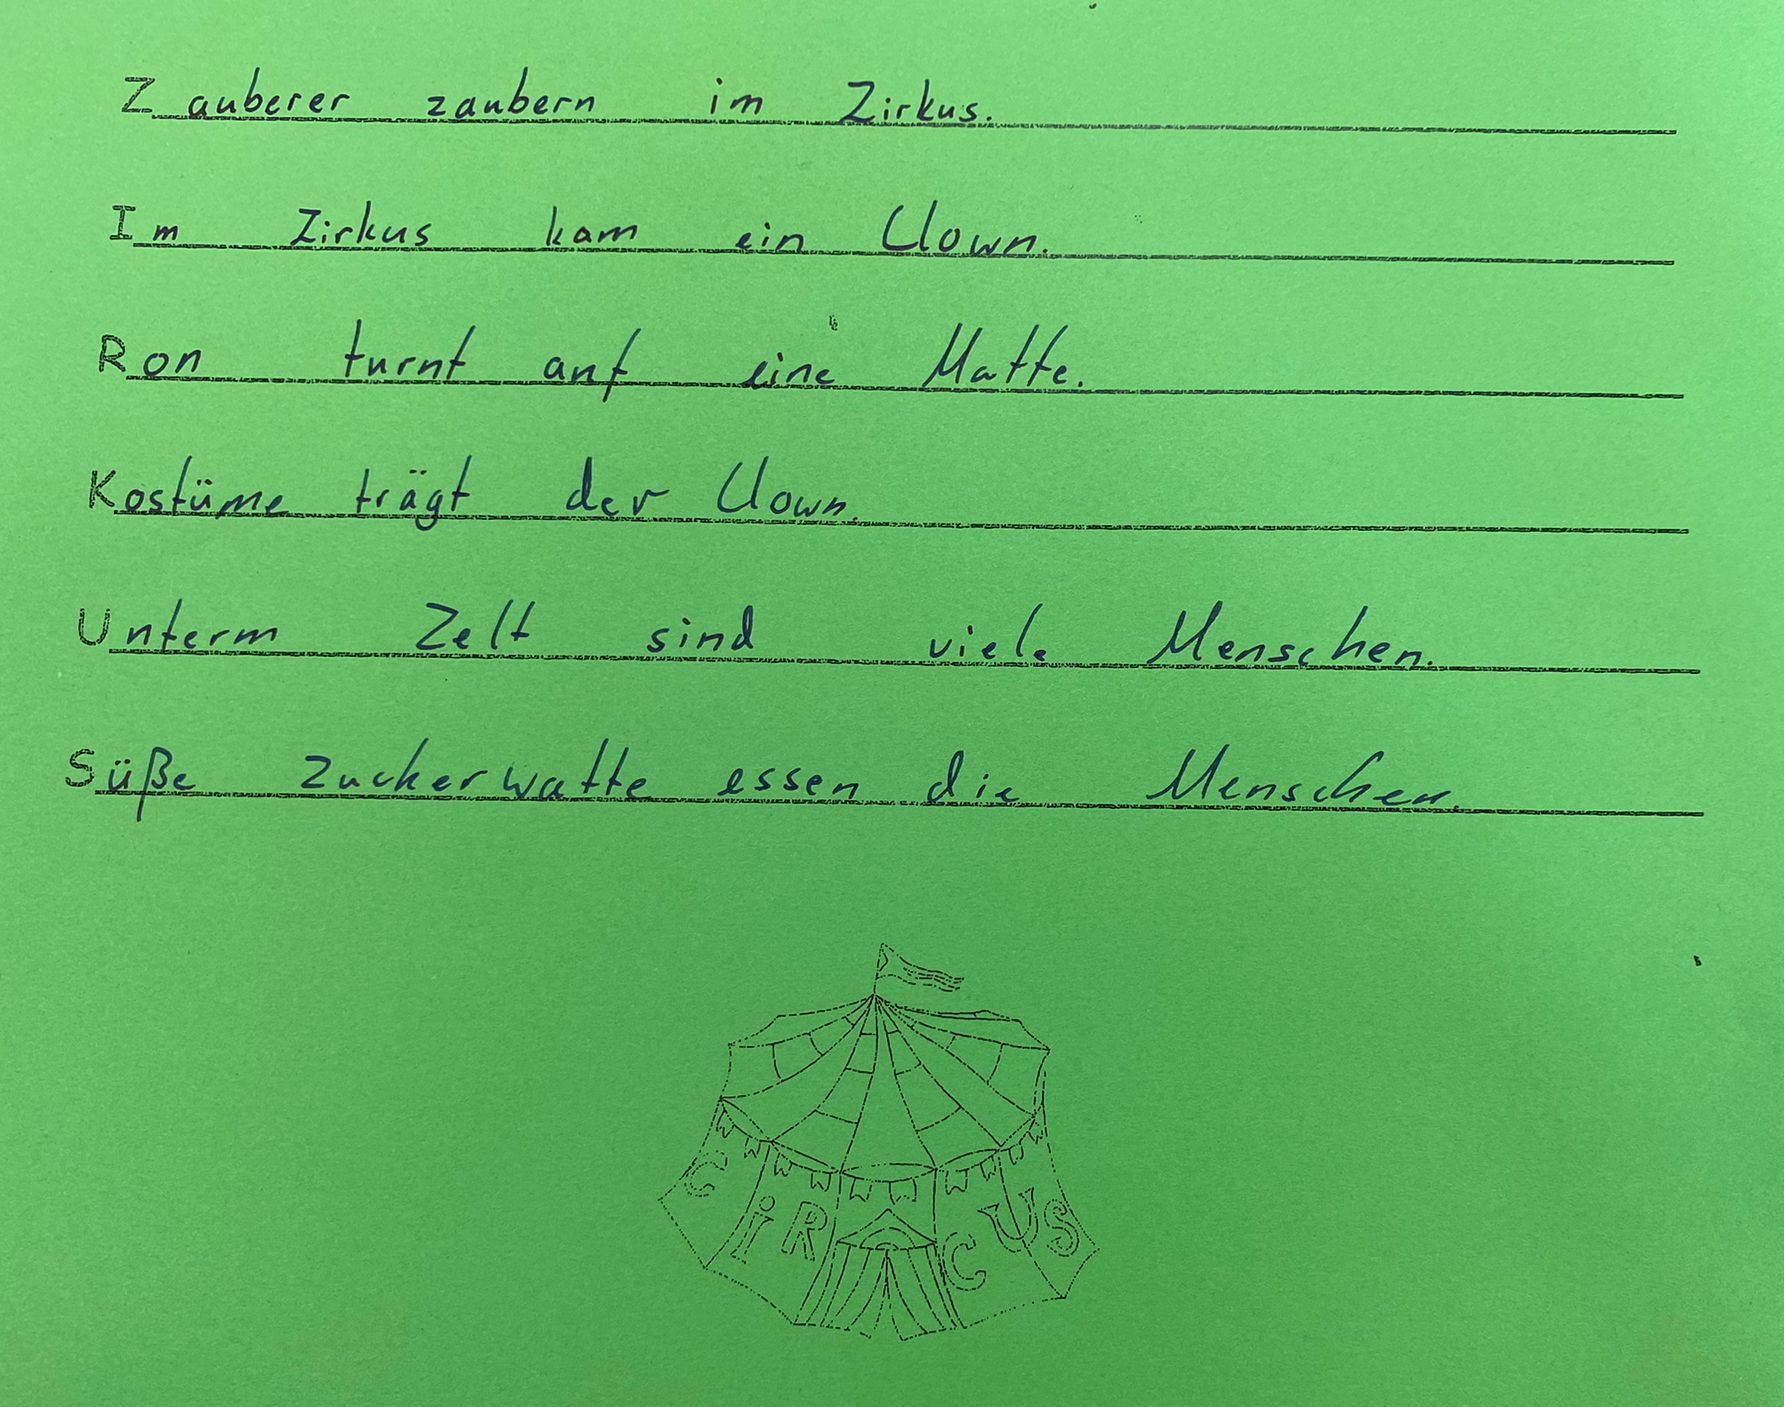 Zauberer zaubern im Zirkus.
Im Zirkus kam ein Clown.
Ron turnt auf eine Matte.
Kostüme trägt der Clown.
Unterm Zelt sind viele Menschen.
Süße Zuckerwatte essen die Menschen.
CiRCUS